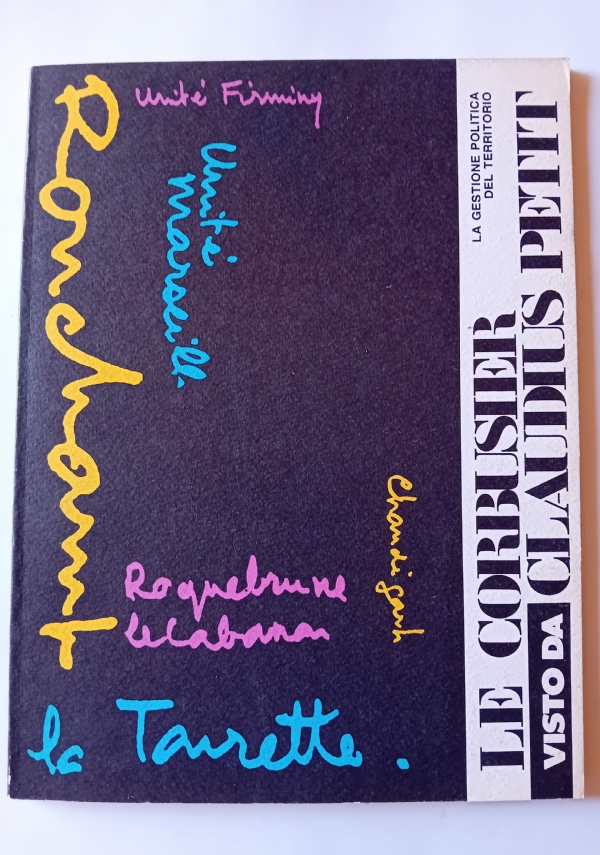 Unité Firminy
Unité
Marseille
Ronchamp
Chandigarh
Roquebrune
le Cabanon
la Tourette.
LA GESTIONE POLITICA
DEL TERRITORIO
LE CORBUSIER
VISTO DA CLAUDIUS PETIT